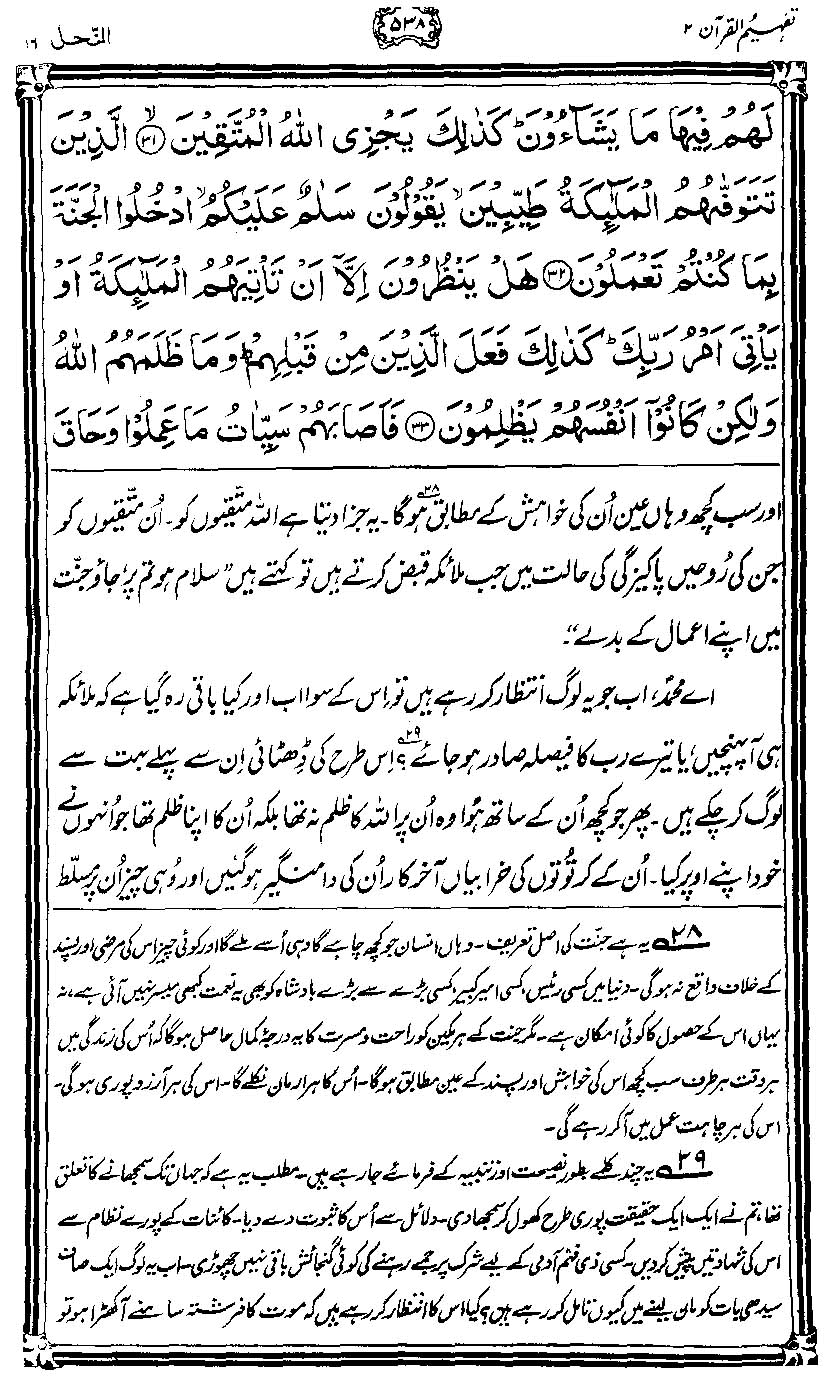 تفہیم القرآن ۲
۵۳۸
النّحل ۱۶
لَهُمْ فِيْهَا مَا يَشَآءُوْنَ ؕ كَذٰلِكَ يَجْزِى اللّٰهُ الْمُتَّقِيْنَ ۙ﴿۳۱﴾ الَّذِيْنَ
تَتَوَفّٰىهُمُ الْمَلٰٓئِكَةُ طَيِّبِيْنَ ۙ يَقُوْلُوْنَ سَلٰمٌ عَلَيْكُمُ ۙ ادْخُلُوا الْجَنَّةَ
بِمَا كُنْتُمْ تَعْمَلُوْنَ ﴿۳۲﴾ هَلْ يَنْظُرُوْنَ اِلَّاۤ اَنْ تَاْتِيَهُمُ الْمَلٰٓئِكَةُ اَوْ
يَاْتِىَ اَمْرُ رَبِّكَ ؕ كَذٰلِكَ فَعَلَ الَّذِيْنَ مِنْ قَبْلِهِمْ ؕ وَمَا ظَلَمَهُمُ اللّٰهُ
وَلٰكِنْ كَانُوْۤا اَنْفُسَهُمْ يَظْلِمُوْنَ ﴿۳۳﴾ فَاَصَابَهُمْ سَيِّاٰتُ مَا عَمِلُوْا وَحَاقَ
اور سب کچھ وہاں عین اُن کی خواہش کے مطابق ہوگا۲۸۔ یہ جزا دیتا ہے اللہ متّقیوں کو۔ اُن متّقیوں کو
جن کی رُوحیں پاکیزگی کی حالت میں جب ملائکہ قبض کرتے ہیں تو کہتے ہیں ”سلام ہو تم پر، جاؤ جنّت
میں اپنے اعمال کے بدلے“۔
اے محمدؐ، اب جو یہ لوگ انتظار کر رہے ہیں تو اِس کے سوا اب اور کیا باقی رہ گیا ہے کہ ملائکہ
ہی آ پہنچیں، یا تیرے رب کا فیصلہ صادر ہو جائے؟۲۹ اِس طرح کی ڈھٹائی اِن سے پہلے بہت سے
لوگ کر چکے ہیں۔ پھر جو کچھ اُن کے ساتھ ہُوا وہ اُن پر اللہ کا ظلم نہ تھا بلکہ اُن کا اپنا ظلم تھا جو اُنہوں نے
خود اپنے اوپر کیا۔ اُن کے کرتُوتوں کی خرابیاں آخر کار اُن کی دامنگیر ہو گئیں اور وُہی چیز اُن پر مسلّط
۲۸ یہ ہے جنّت کی اصل تعریف۔ وہاں انسان جو کچھ چاہے گا وہی اُسے ملے گا اور کوئی چیز اس کی مرضی اور پسند
کے خلاف واقع نہ ہوگی۔ دنیا میں کسی رئیس، کسی امیر کبیر، کسی بڑے سے بڑے بادشاہ کو بھی یہ نعمت کبھی میسر نہیں آئی ہے، نہ
یہاں اس کے حصول کا کوئی امکان ہے۔ مگر جنت کے ہر مکین کو راحت و مسرت کا یہ درجۂ کمال حاصل ہوگا کہ اُس کی زندگی میں
ہر وقت ہر طرف سب کچھ اس کی خواہش اور پسند کے عین مطابق ہوگا۔ اُس کا ہر ارمان نکلے گا۔ اس کی ہر آرزو پوری ہوگی۔
اس کی ہر چاہت عمل میں آکر رہے گی۔
۲۹ یہ چند کلمے بطور نصیحت اور تنبیہ کے فرمائے جا رہے ہیں۔ مطلب یہ ہے کہ جہاں تک سمجھانے کا تعلق
تھا، تم نے ایک ایک حقیقت پوری طرح کھول کر سمجھا دی۔ دلائل سے اُس کا ثبوت دے دیا۔ کائنات کے پورے نظام سے
اس کی شہادتیں پیش کر دیں۔ کسی ذی فہم آدمی کے لیے شرک پر جمے رہنے کی کوئی گنجائش باقی نہیں چھوڑی۔ اب یہ لوگ ایک صاف
سیدھی بات کو مان لینے میں کیوں تامل کر رہے ہیں؟ کیا اس کا انتظار کر رہے ہیں کہ موت کا فرشتہ سامنے آکھڑا ہو تو